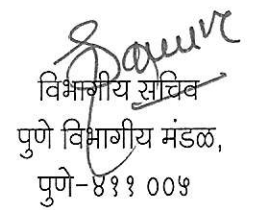 विभागीय सचिव
पुणे विभागीय मंडळ,
पुणे-४११ ००५